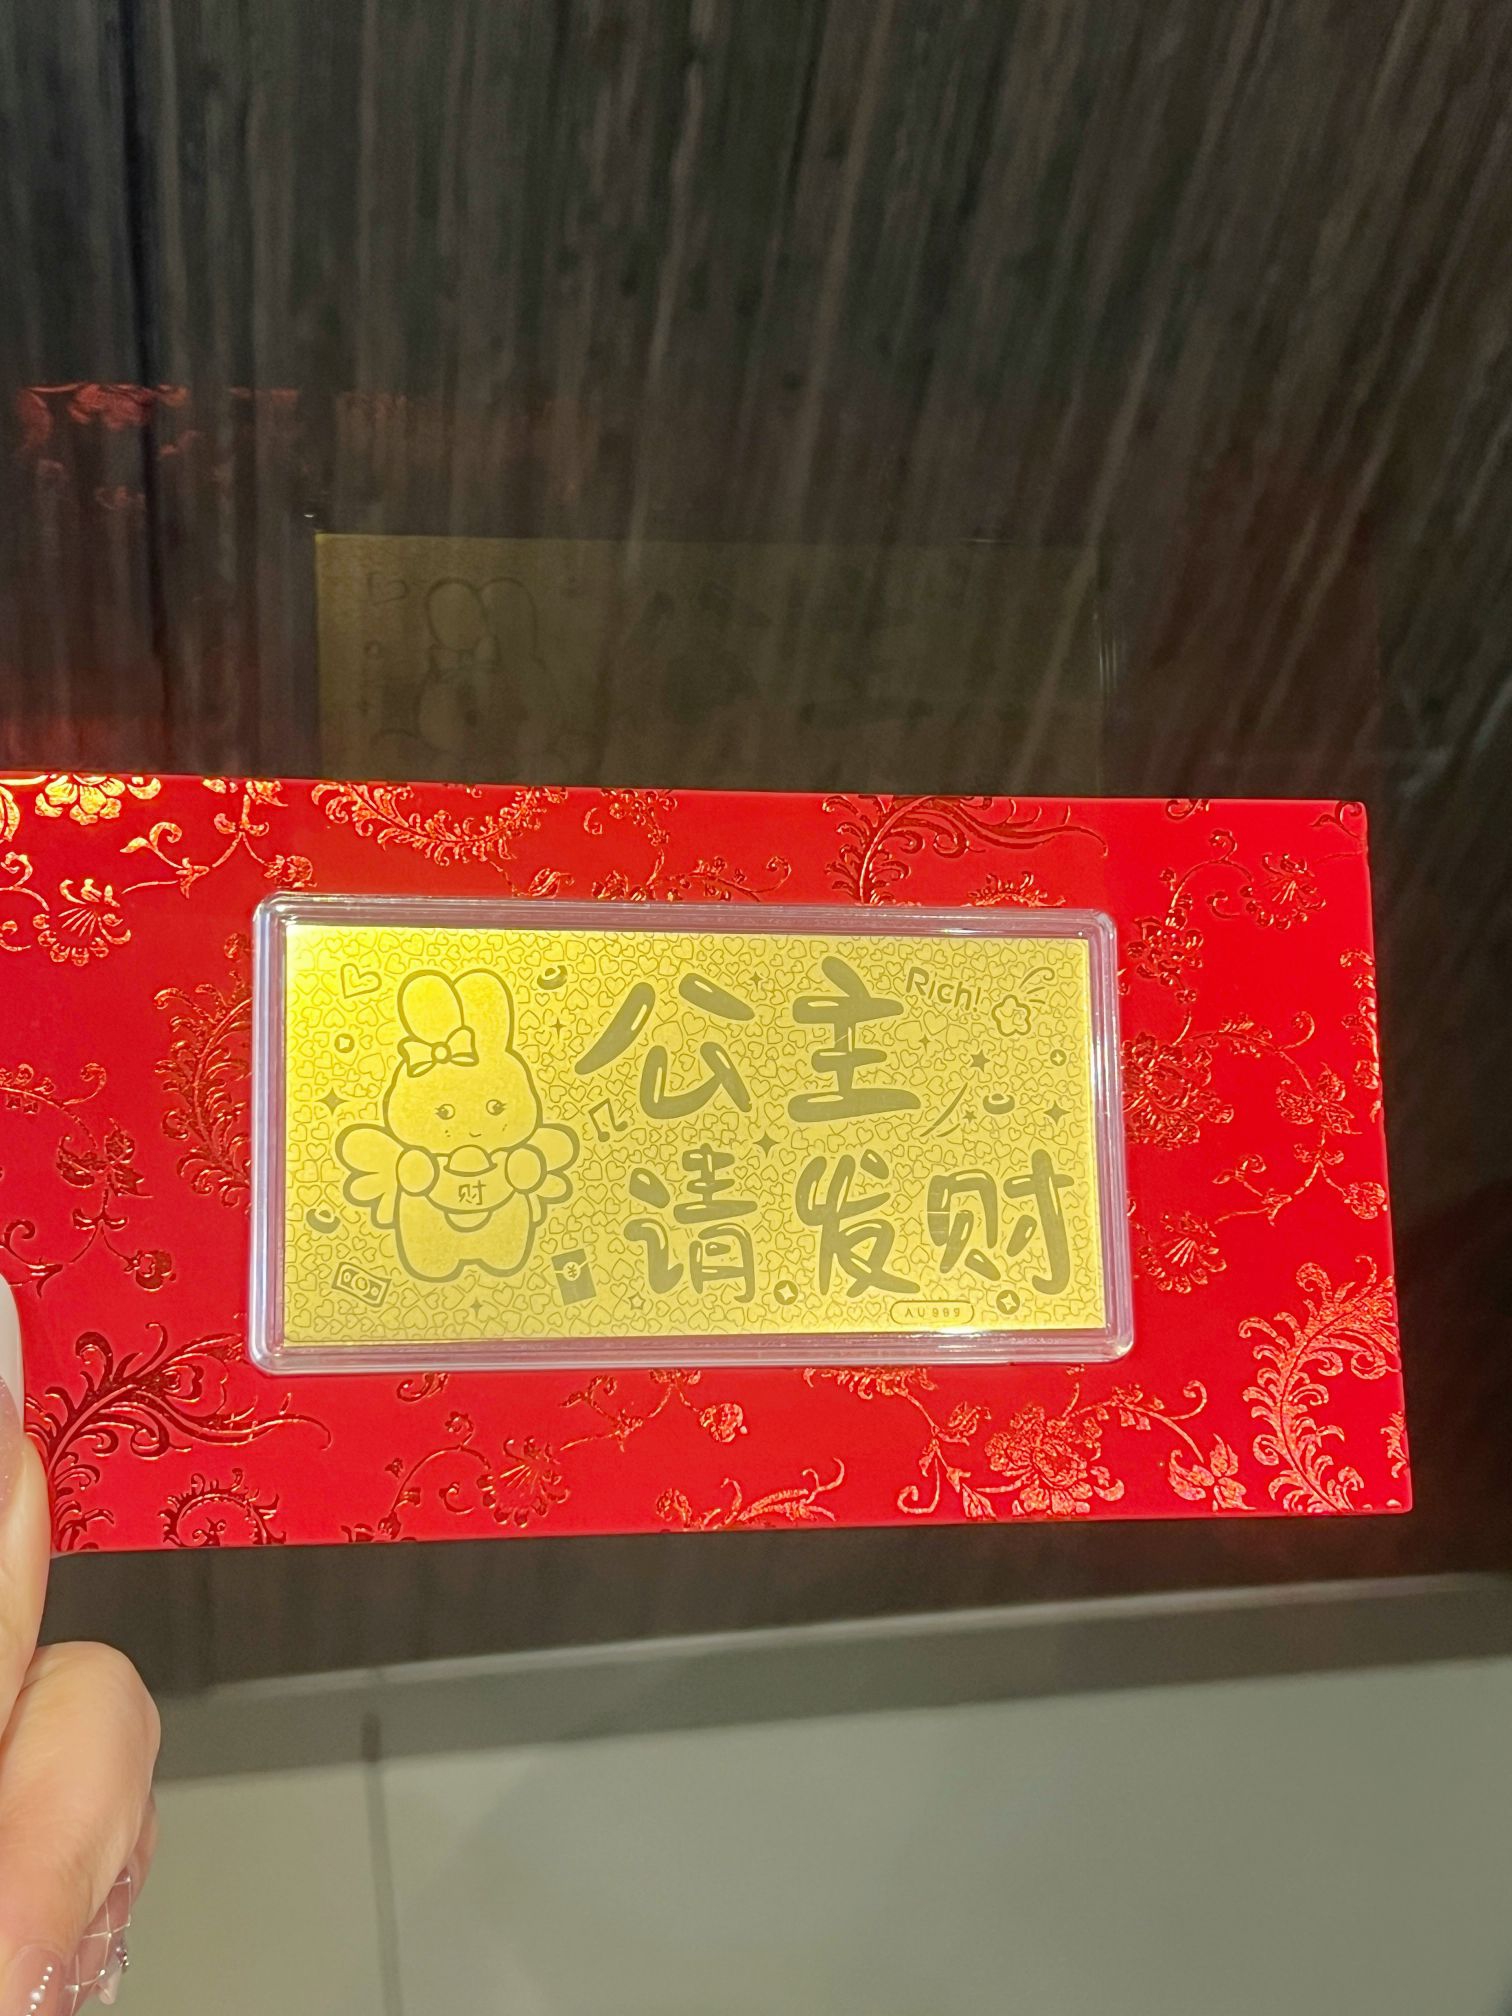 公主
Rich!
请发财
财
AU999